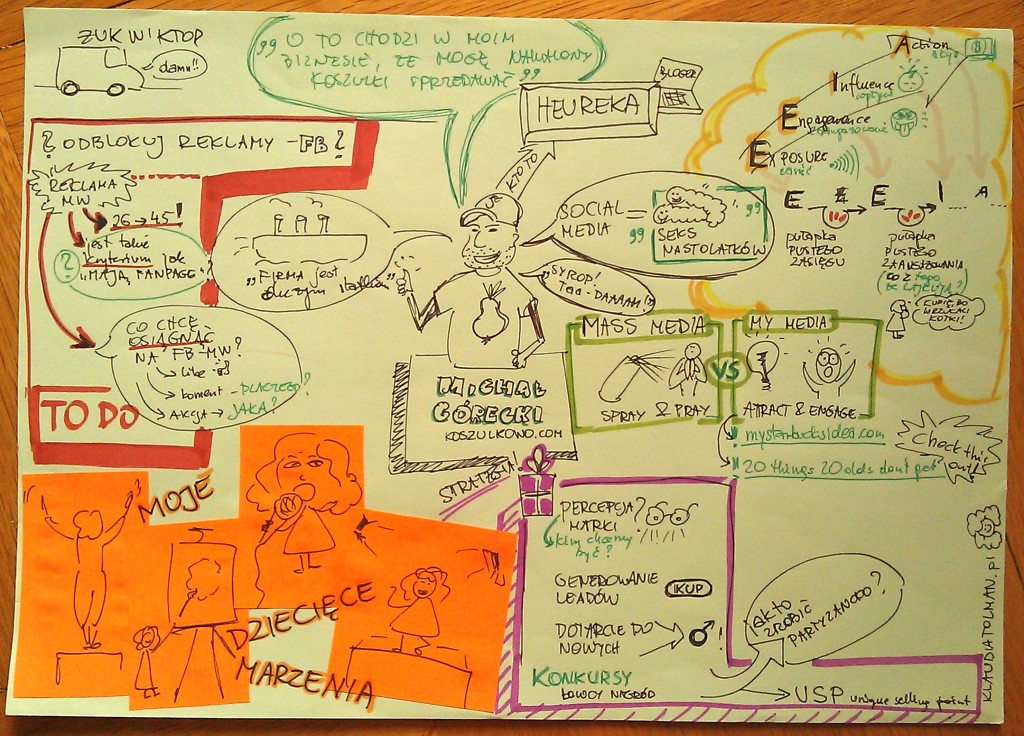 ZUK WIKTOR
damn!!
„ O TO CHODZI W MOIM
BIZNESIE, ŻE MOGĘ
KOSZULKI SPRZEDAWAĆ "
BLOGER
HEUREKA
KTO TO
Action
Influence
Engagement
Exposure
E E E I A
pułapka
PUSTEGO
ZASIĘGU
pułapka
PUSTEGO
ZAANGAŻOWANIA
WRZUCAĆ
KOTKI!
? ODBLOKUJ REKLAMY - FB ?
REKLAMA
MW
26 → 45!
?
jest takie
kryterium jak
"MAJĄ FANPAGE"
„FIRMA jest
dużym statkiem"
SOCIAL
MEDIA = „ SEKS
NASTOLATKÓW "
„SYROP!
TAA-DAAAAM!"
CO CHCĘ
OSIĄGNĄĆ
NA FB-MW?
→ like
→ koment - DLACZEGO?
→ AKCJA → JAKA?
TO DO
MICHAŁ
GÓRECKI
KOSZULKOWO.COM
MASS MEDIA
SPRAY & PRAY
VS
MY MEDIA
ATTRACT & ENGAGE
mystarbucksidea.com
20 things 20 olds don't get
Check this
out!
MOJE
DZIECIĘCE
MARZENIA
STRATEGIA!
PERCEPCJA
MARKI
kim chcemy
być?
GENEROWANIE
LEADÓW
KUP
DOTARCIE DO
NOWYCH
!
KONKURSY
ŁOWCY NAGRÓD
JAK TO
ZROBIĆ
PARTYZANCKO?
USP unique selling point
KLAUDIATOLMAN.pl